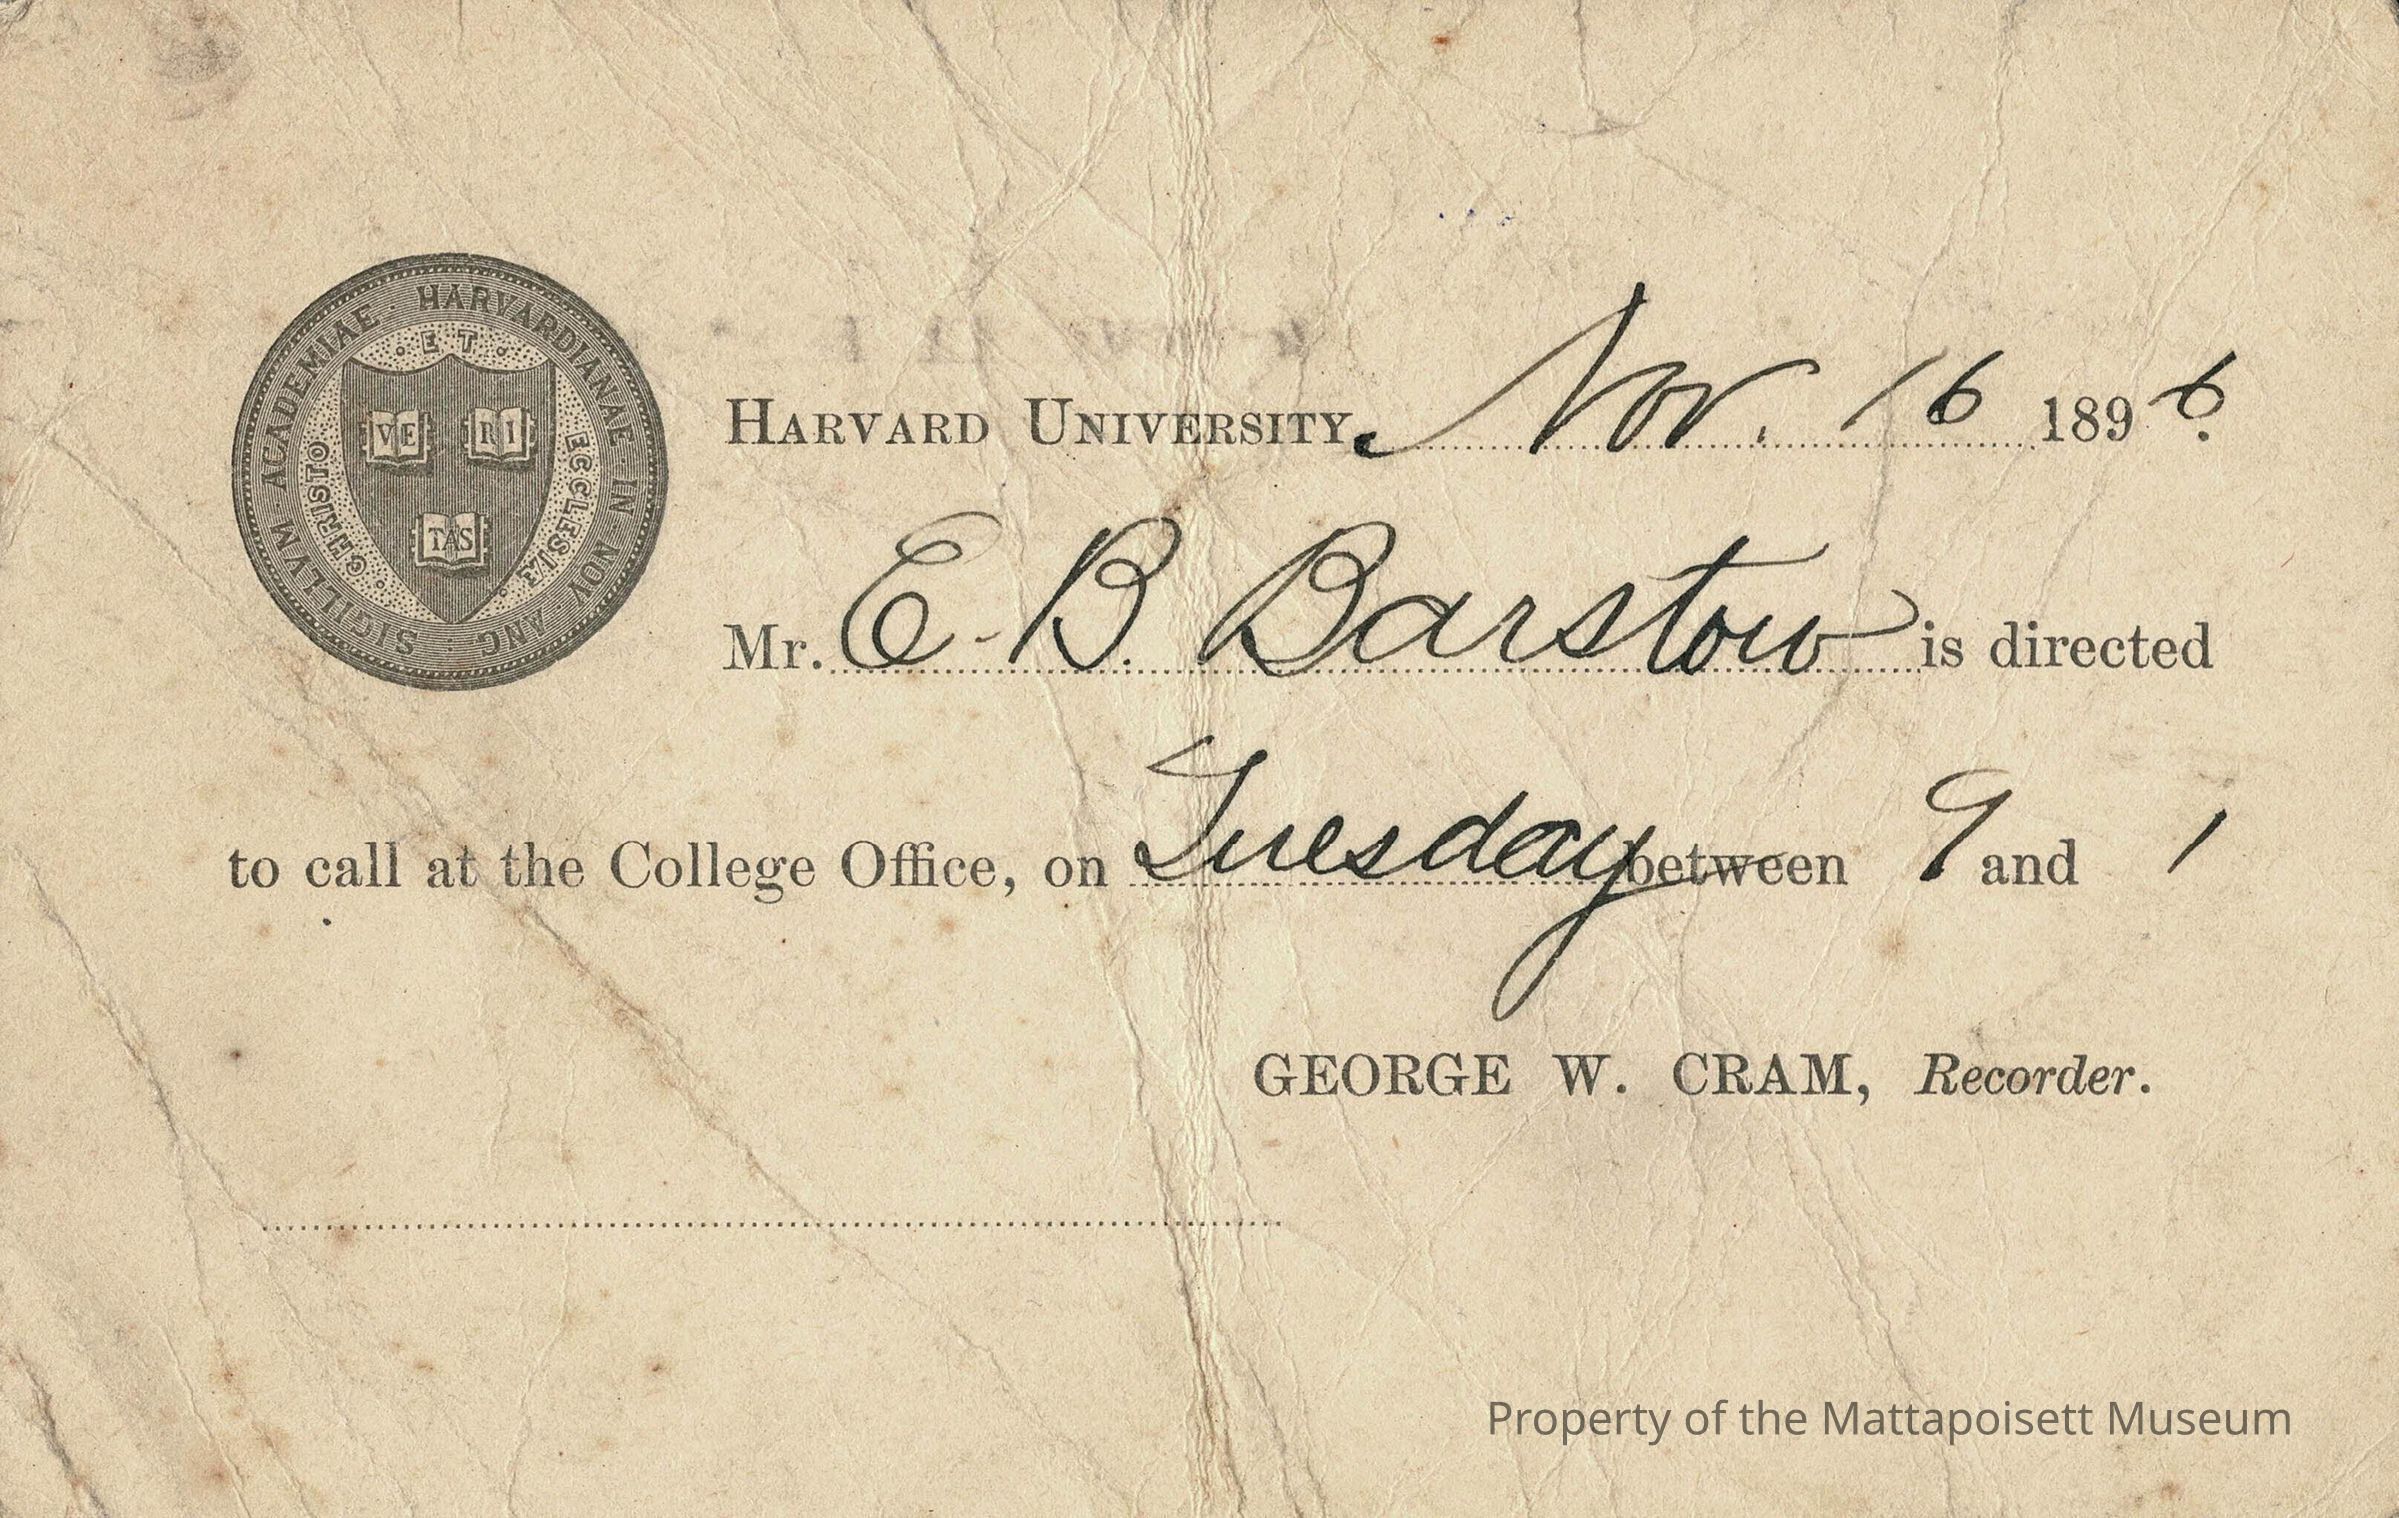 SIGILLVM · ACADEMIAE · HARVARDIANAE · IN · NOV · ANG ·
· CHRISTO · ET · ECCLESIÆ ·
VE RI
TAS
HARVARD UNIVERSITY, Nov. 16 1896.
Mr. E. B. Barstow is directed
to call at the College Office, on Tuesday between 9 and 1
GEORGE W. CRAM, Recorder.
Property of the Mattapoisett Museum